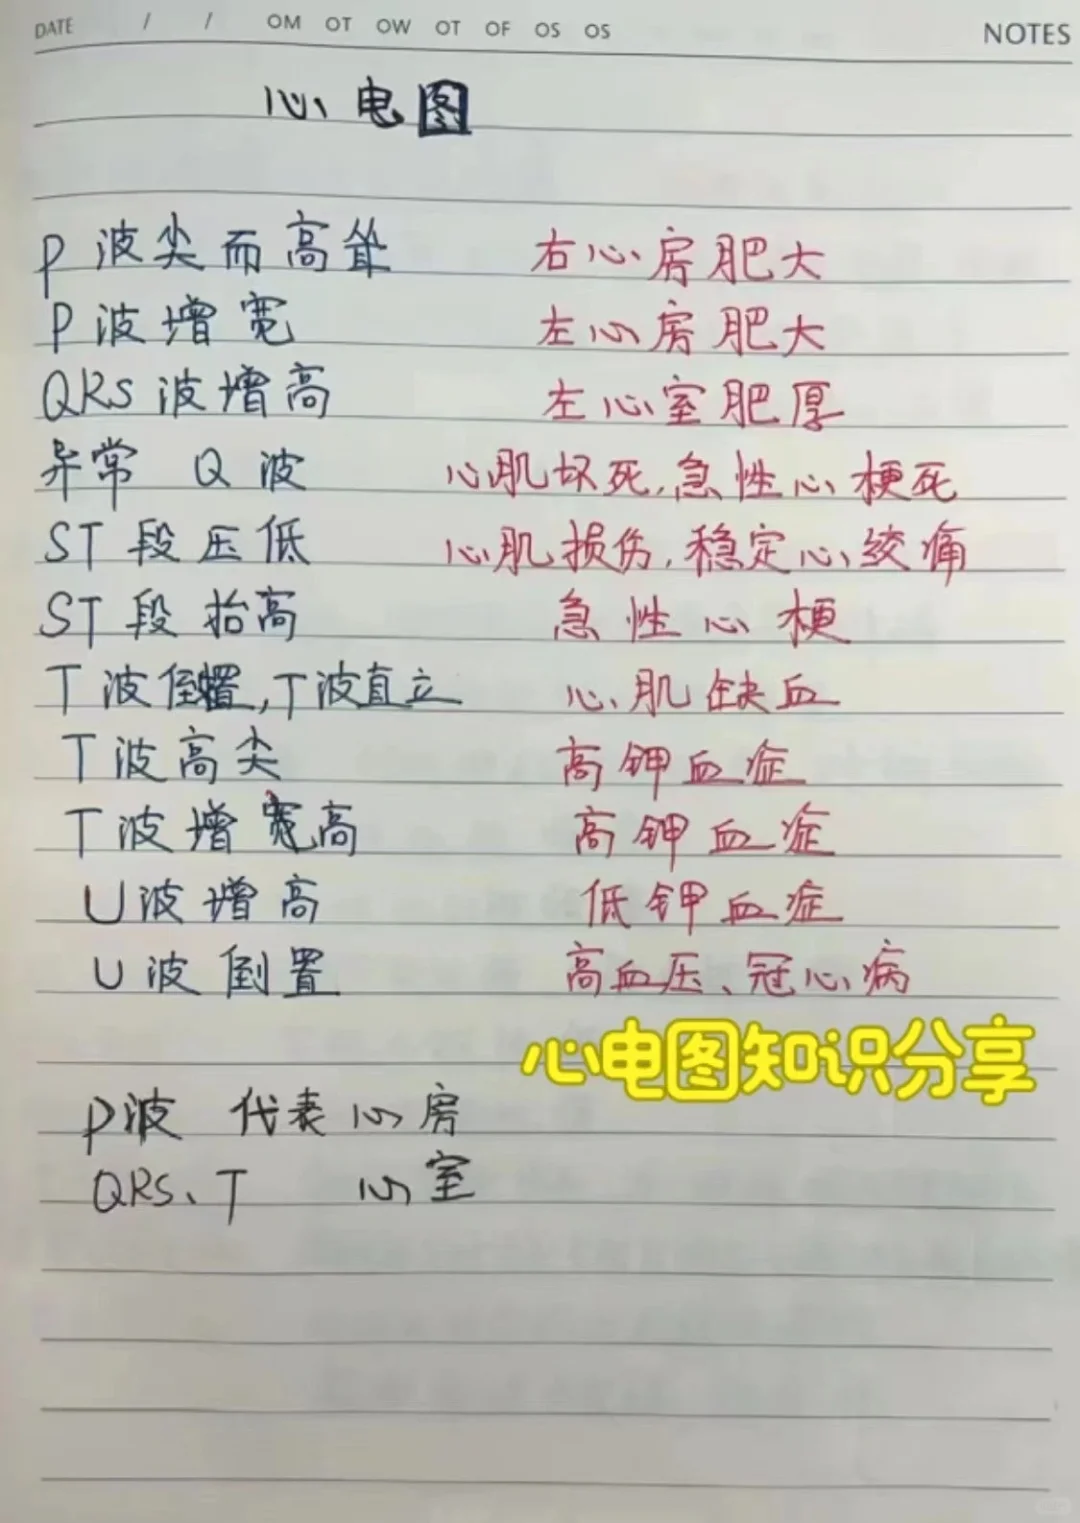 DATE / / OM OT OW OT OF OS OS NOTES
心电图
P波尖而高耸 右心房肥大
P波增宽 左心房肥大
QRS波增高 左心室肥厚
异常Q波 心肌坏死,急性心梗死
ST段压低 心肌损伤,稳定心绞痛
ST段抬高 急性心梗
T波倒置,T波直立 心肌缺血
T波高尖 高钾血症
T波增宽高 高钾血症
U波增高 低钾血症
U波倒置 高血压、冠心病
心电图知识分享
P波 代表心房
QRS、T 心室